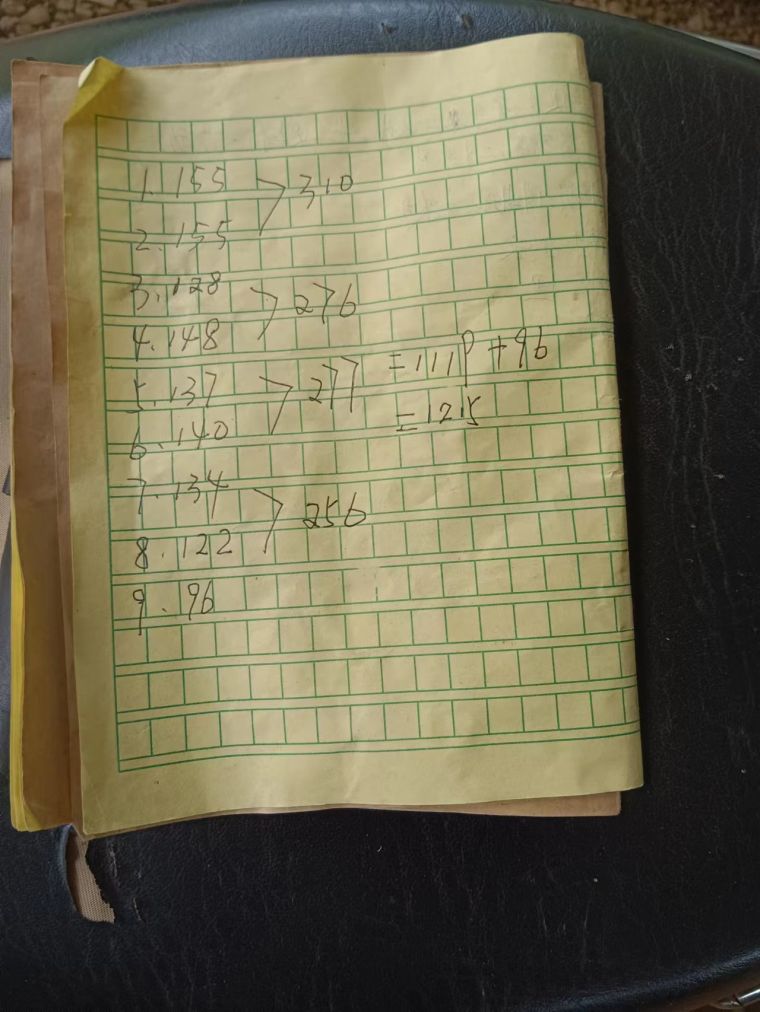 1. 155
2. 155
> 310
3. 128
4. 148
> 276
5. 137
6. 140
> 277
7. 134
8. 122
> 256
9. 96
= 1119 + 96
= 1215